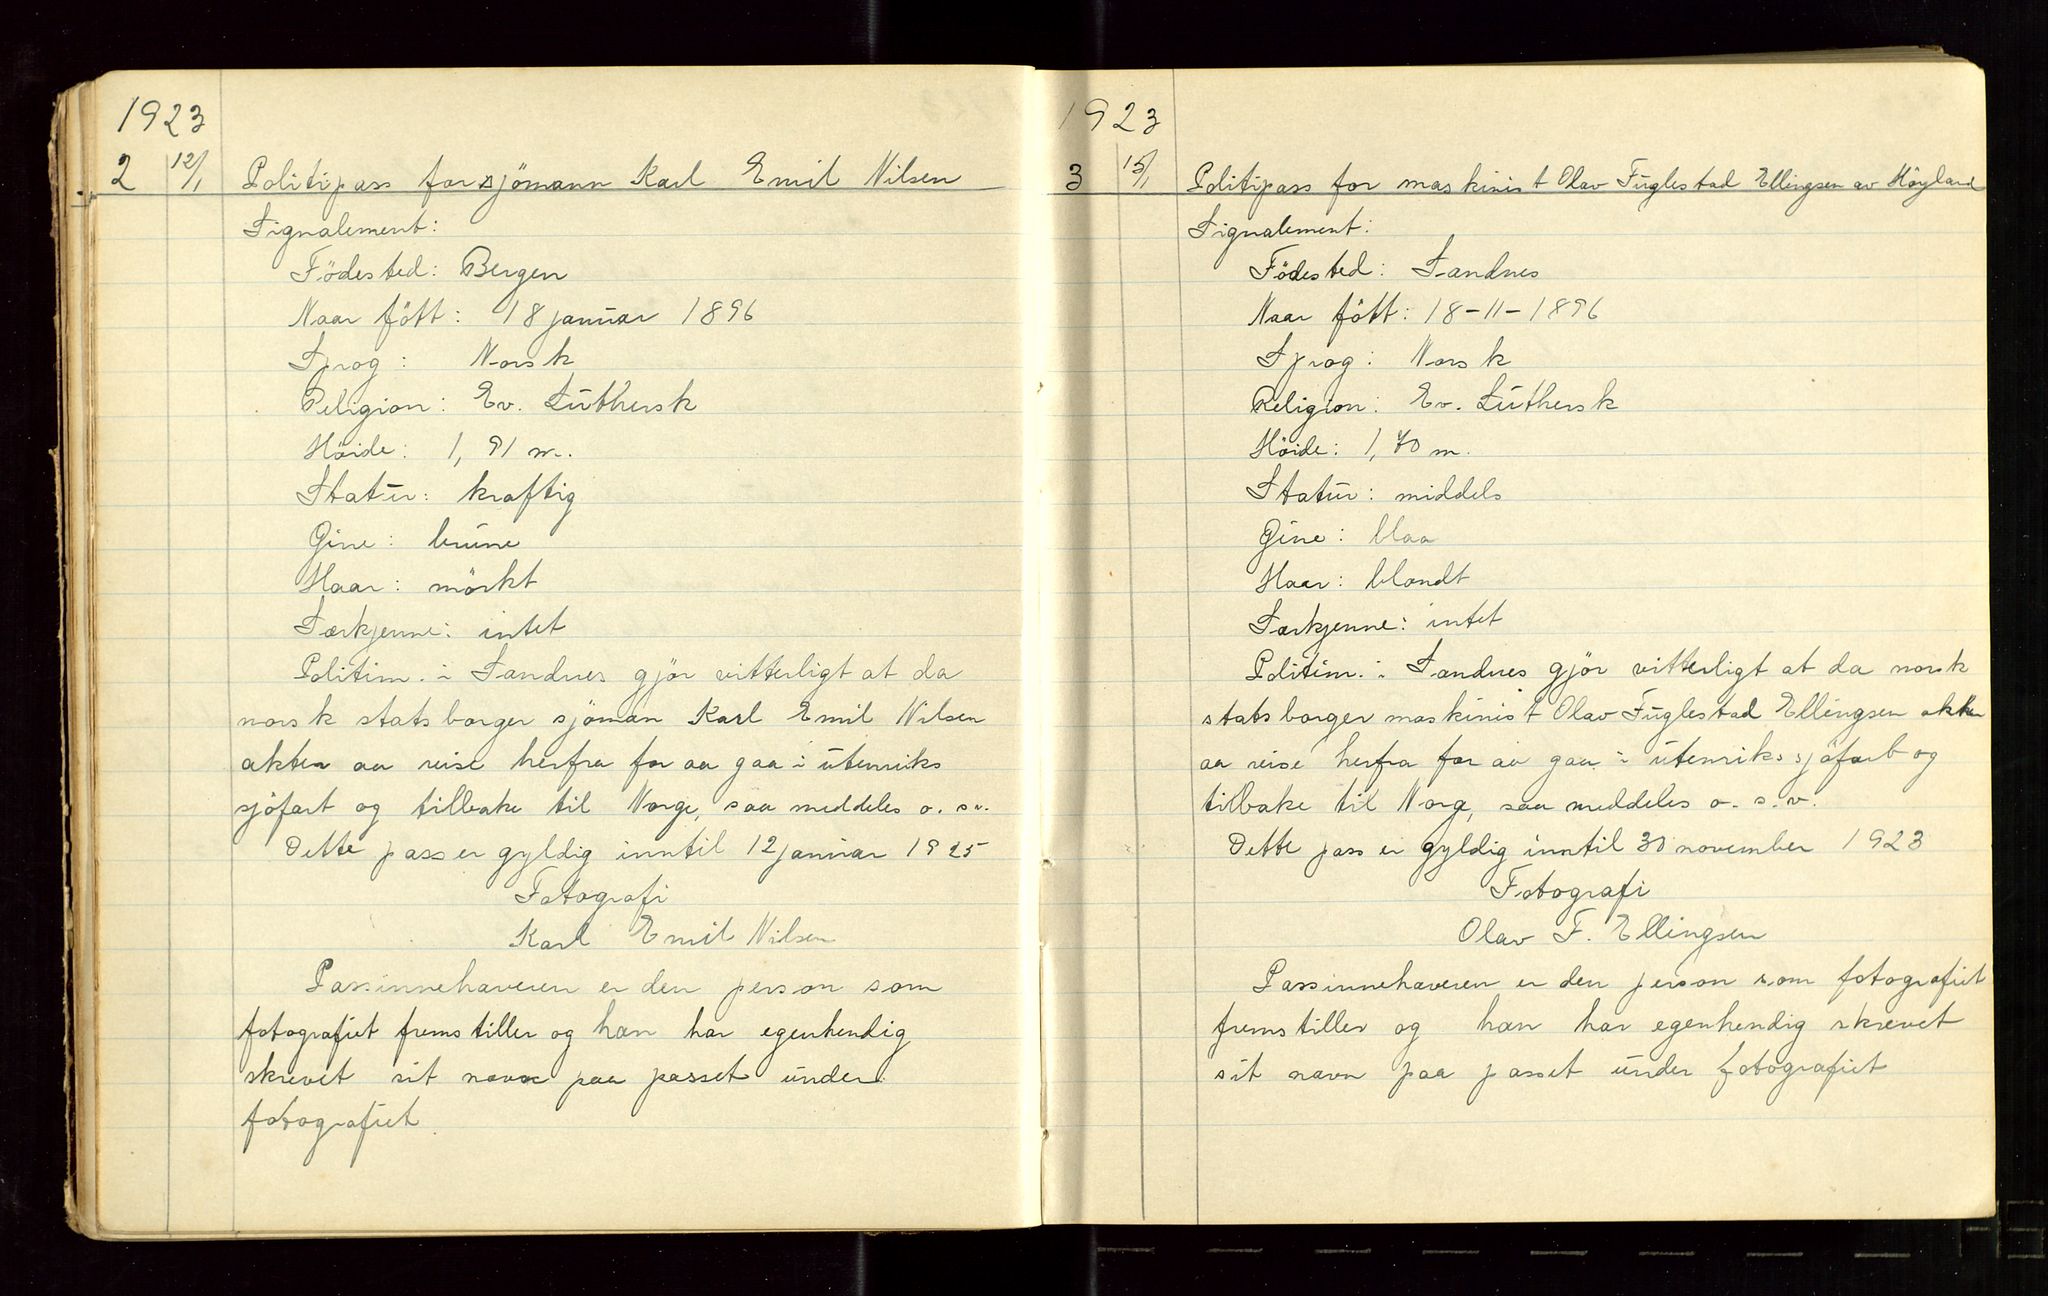 1923
2 12/1 Politipass for sjömann Karl Emil Nilsen
Signalement:
Födested: Bergen
Naar fött: 18 januar 1896
Sprog: Norsk
Religion: Ev. Luthersk
Höide: 1,91 m.
Statur: kraftig
Öine: brune
Haar: mörkt
Særkjenne: intet
Politim. i Sandnes gjör vitterligt at da
norsk statsborger sjöman Karl Emil Nilsen
akter aa reise herfra for aa gaa i utenriks
sjöfart og tilbake til Norge, saa meddeles o. s. v.
Dette pass er gyldig inntil 12 januar 1925
Fotografi
Karl Emil Nilsen
Passinnehaveren er den person som
fotografiet fremstiller og han har egenhendig
skrevet sit navn paa passet under
fotografiet.
1923
3 15/1 Politipass for maskinist Olav Fuglestad Ellingsen av Höyland
Signalement:
Födested: Sandnes
Naar fött: 18-11-1896
Sprog: Norsk
Religion: Ev. Luthersk
Höide: 1,70 m.
Statur: middels
Öine: blaa
Haar: blondt
Særkjenne: intet
Politim. i Sandnes gjör vitterligt at da norsk
statsborger maskinist Olav Fuglestad Ellingsen akter
aa reise herfra for aa gaa i utenriks sjöfart og
tilbake til Norge, saa meddeles o. s. v.
Dette pass er gyldig inntil 30 november 1923
Fotografi
Olav F. Ellingsen
Passinnehaveren er den person som fotografiet
fremstiller og han har egenhendig skrevet
sit navn paa passet under fotografiet